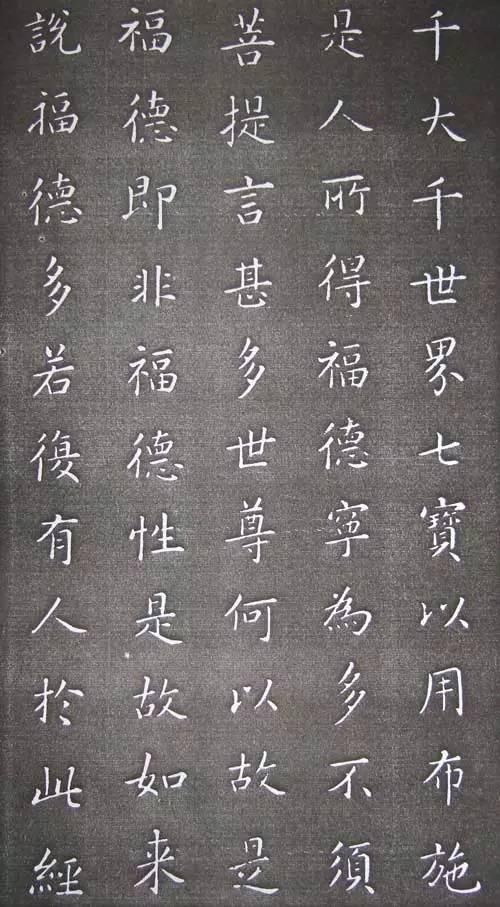 千大千世界七寶以用布施
是人所得福德寧為多不須
菩提言甚多世尊何以故是
福德即非福德性是故如来
說福德多若復有人於此經